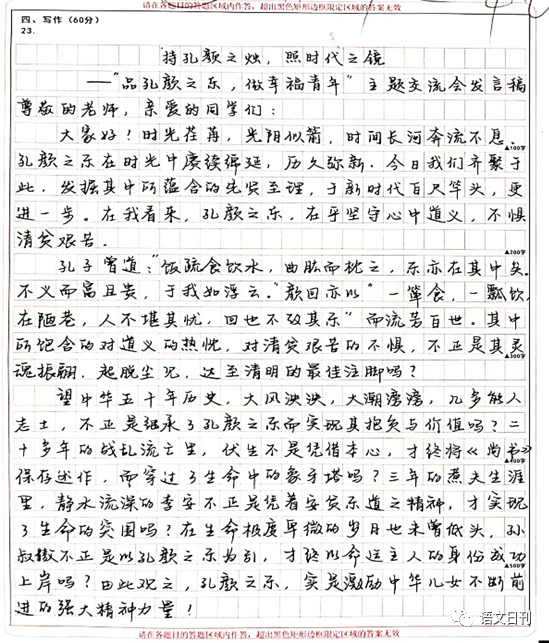 请在各题目的答题区域内作答，超出黑色矩形边框限定区域的答案无效
四、写作（60分）
23.
持孔颜之烛，照时代之镜
——“品孔颜之乐，做幸福青年”主题交流会发言稿
尊敬的老师，亲爱的同学们：
大家好！时光荏苒，光阴似箭，时间长河奔流不息。
▲100字
孔颜之乐在时光中赓续绵延，历久弥新。今日我们齐聚于
此，发掘其中所蕴含的先贤至理，于新时代百尺竿头，更
进一步。在我看来，孔颜之乐，在乎坚守心中道义，不惧
清贫艰苦。
▲200字
孔子曾道：“饭疏食饮水，曲肱而枕之，乐亦在其中矣。
不义而富且贵，于我如浮云。”颜回亦以“一箪食，一瓢饮，
在陋巷，人不堪其忧，回也不改其乐”而流芳百世。其中
所饱含的对道义的热忱，对清贫艰苦的不惧，不正是其灵
▲300字
魂振翮，超脱尘泥，达至清明的最佳注脚吗？
望中华五千年历史，大风泱泱，大潮滂滂，几多能人
志士，不正是继承了孔颜之乐而实现其抱负与价值吗？二
十多年的战乱流亡里，伏生不是凭借本心，才终将《尚书》
▲400字
保存述作，而穿过了生命中的象牙塔吗？三年的煮夫生涯
里，静水流深的李安不正是凭着安贫乐道之精神，才实现
了生命的突围吗？在生命极度卑微的岁月也未曾低头，孙
叔敖不正是以孔颜之乐为引，才终以命运主人的身份成功
▲500字
上岸吗？由此观之，孔颜之乐，实是激励中华儿女不断前
进的强大精神力量！
语文日刊
请在各题目的答题区域内作答，超出黑色矩形边框限定区域的答案无效